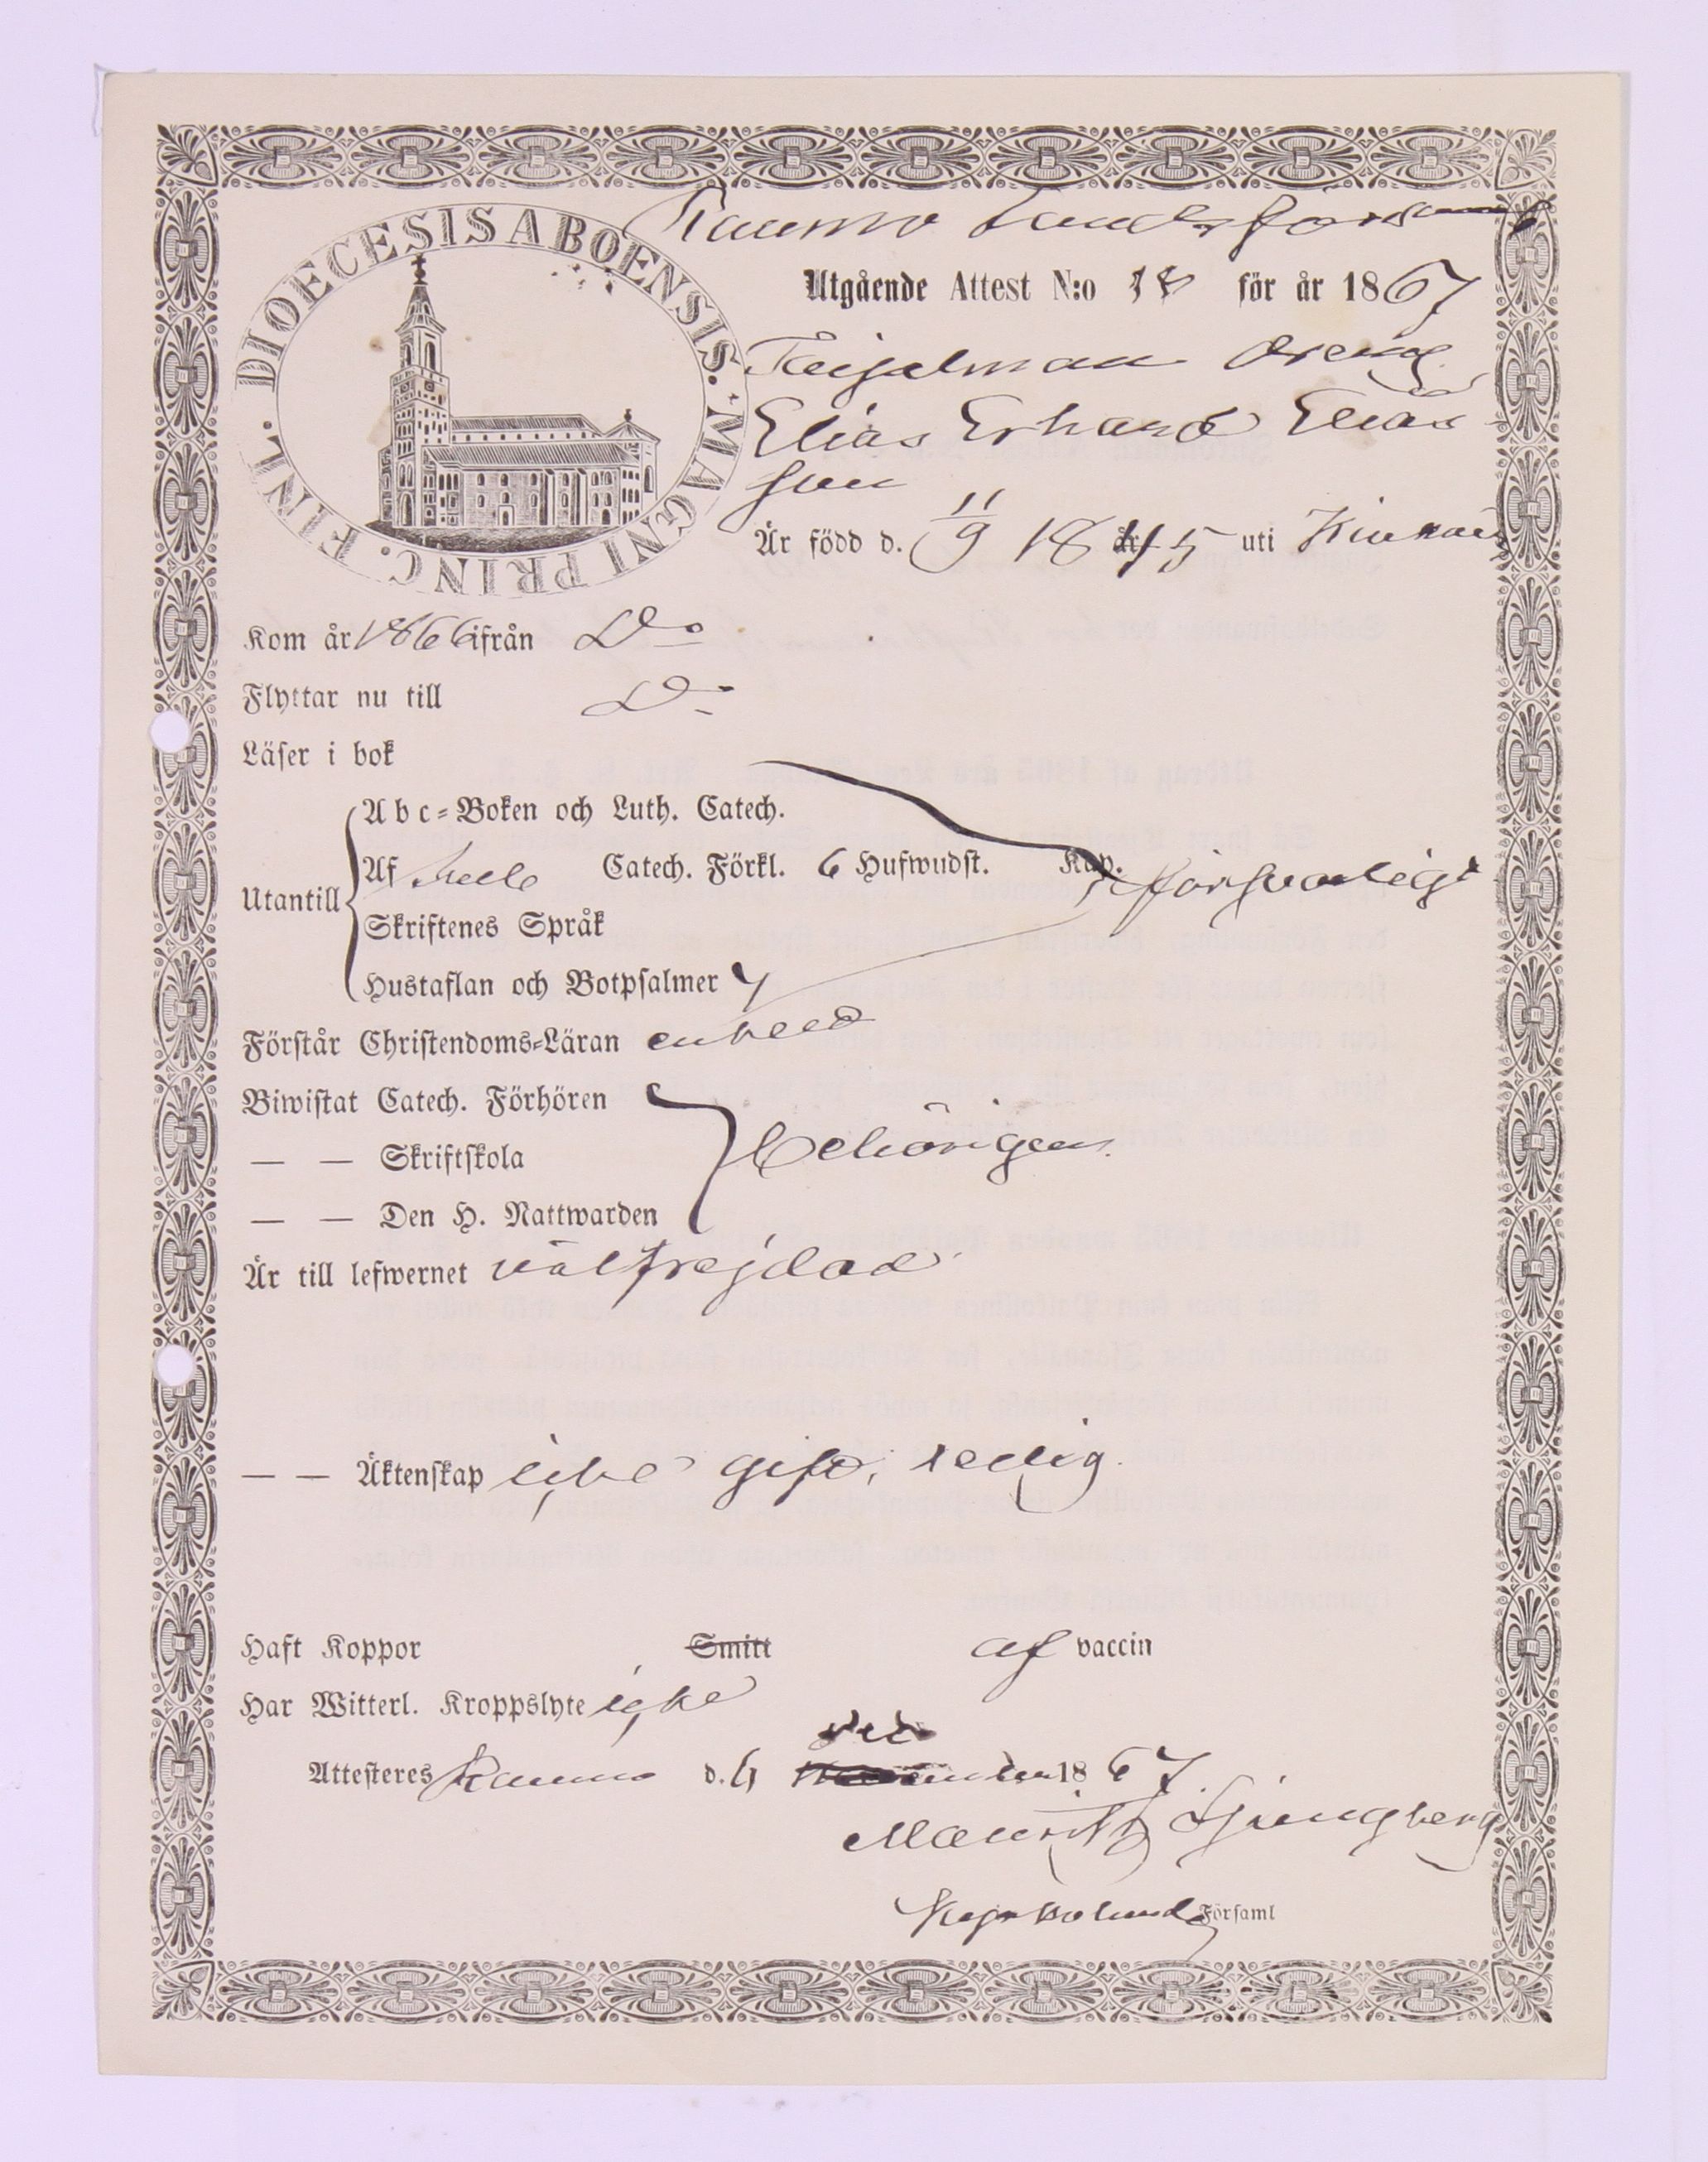 Raumo Landsförsaml
DIOECESIS ABOENSIS. MAGNI PRINC. FINL.
Utgående Attest N:o 18 för år 1867
dreng
Elias Erhard Elias
son
Är född d. 11/9 1845 uti Kiukais
Kom år 1866 ifrån D:o
Flyttar nu till D:o
Läser i bok
Abc-Boken och Luth. Catech.
Utantill Af Catech. Förkl. 6 Hufwudst. Kap. försvarligt
Skriftenes Språk
Hustaflan och Botpsalmer 7
Förstår Christendoms-Läran enkelt
Biwistat Catech. Förhören
— — Skriftskola behörigen
— — Den H. Nattwarden
Är till lefwernet välfrejdad
— — Äktenskap icke gift, ledig.
Haft Koppor Smitt af vaccin
Har Witterl. Kroppslyte icke
Attesteres Raumo d. 1867.
Mauritz Ljungberg
Församl